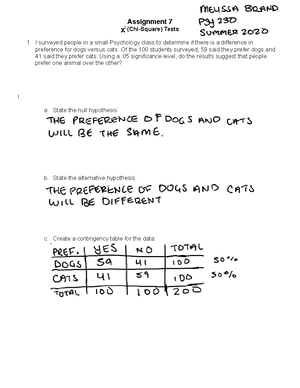 MELISSA BRAND
Assignment 7
Psy 230
χ² (Chi-Square) Tests
SUMMER 2020
1. I surveyed people in a small Psychology class to determine if there is a difference in
preference for dogs versus cats. Of the 100 students surveyed, 59 said they prefer dogs and
41 said they prefer cats. Using a .05 significance level, do the results suggest that people
prefer one animal over the other?
a. State the null hypothesis:
THE PREFERENCE OF DOGS AND CATS
WILL BE THE SAME.
b. State the alternative hypothesis:
THE PREFERENCE OF DOGS AND CATS
WILL BE DIFFERENT
c. Create a contingency table for the data:
PREF. YES NO TOTAL
DOGS 59 41 100 50%
CATS 41 59 100 50%
TOTAL 100 100 200